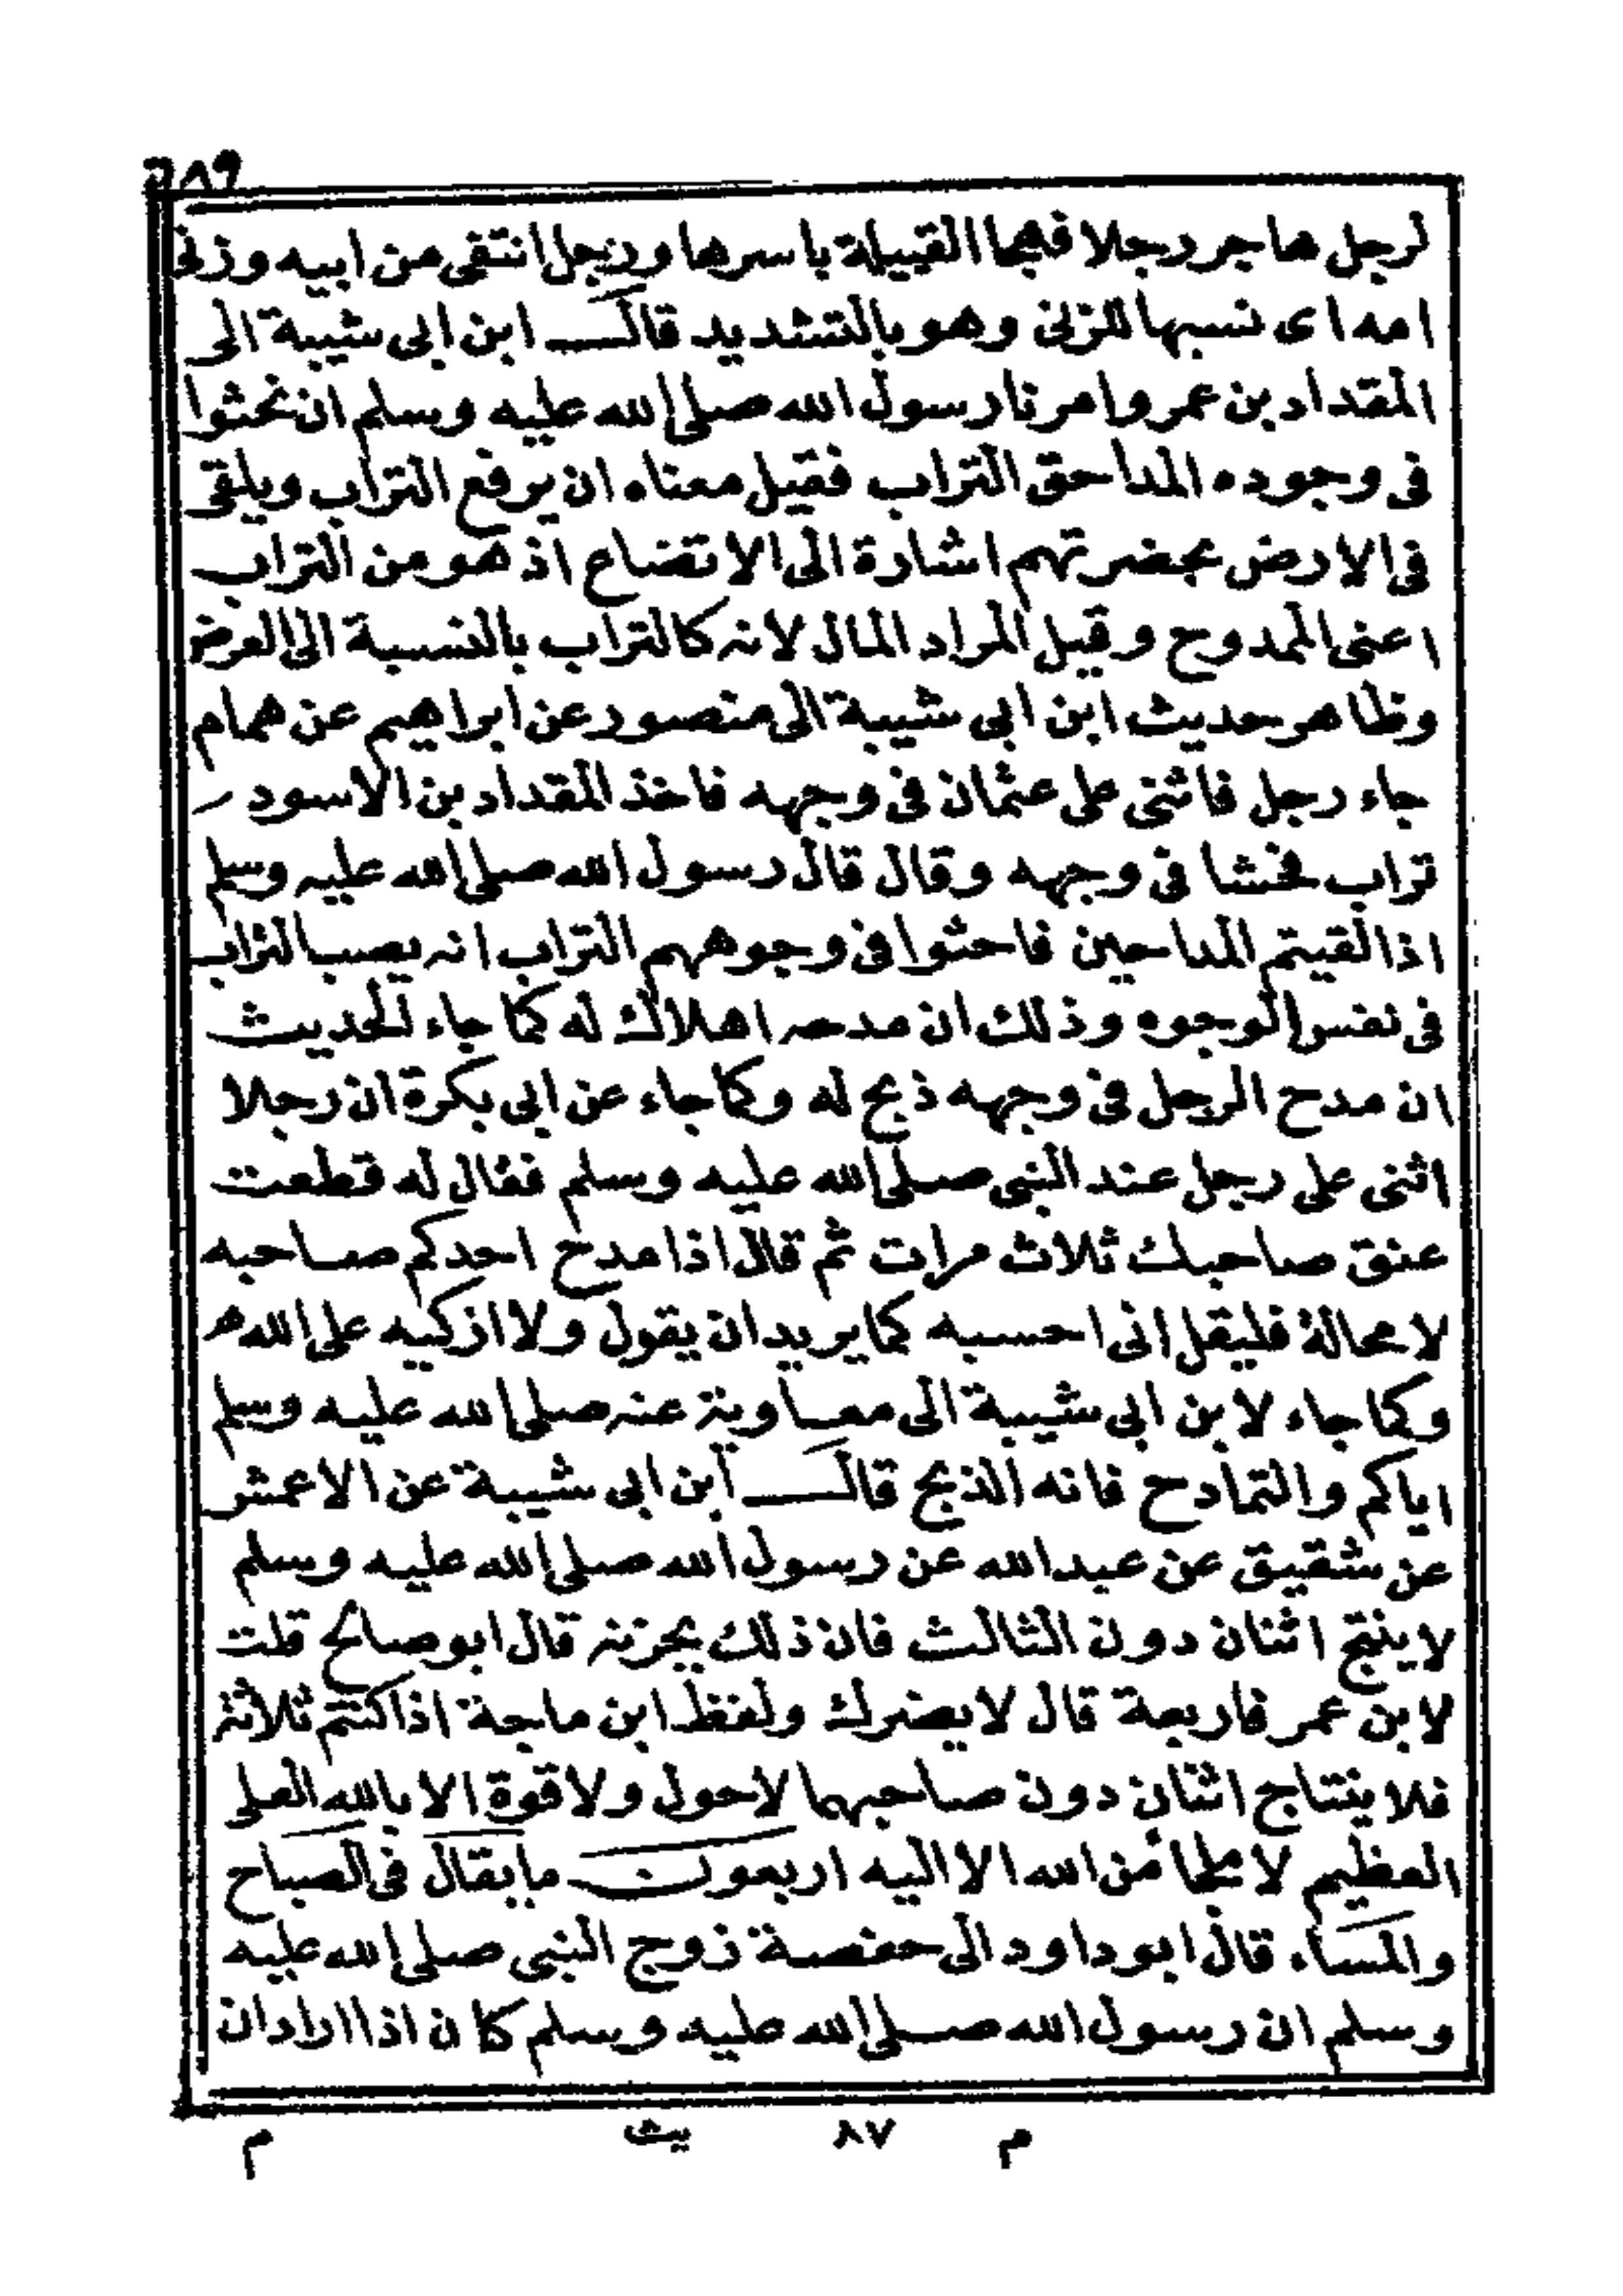 ٦٨٩
لرجل هاجر رجلا فهجا القبيلة باسرها ورجل انتقى من ابيه وزنى
امه اى نسبها للزنى وهو بالتشديد قال ابن ابى شيبة الى
المقداد بن عمرو امرنا رسول الله صلى الله عليه وسلم ان نحثوا
فى وجوده المداحق التراب فقيل معناه ان يرفع التراب ويلقى
فى الارض بحضرتهم اشارة الى الاتضاع اذ هو من التراب
اعنى الممدوح وقيل المراد المال لانه كالتراب بالنسبة الى العرض
وظاهر حديث ابن ابى شيبة الى منصور عن ابراهيم عن همام
جاء رجل فاثنى على عثمان فى وجهه فاخذ المقداد بن الاسود
تراب فحثا فى وجهه وقال قال رسول الله صلى الله عليه وسلم
اذا لقيتم المداحين فاحثوا فى وجوههم التراب انه يصب التراب
فى نفس الوجوه وذلك ان مدحه اهلاك له كما جاء لحديث
ان مدح الرجل فى وجهه ذبح له وكما جاء عن ابى بكرة ان رجلا
اثنى على رجل عند النبى صلى الله عليه وسلم فقال له قطعت
عنق صاحبك ثلاث مرات ثم قال اذا مدح احدكم صاحبه
لا محالة فليقل انى احسبه كما يريد ان يقول ولا ازكيه على الله
وكما جاء لابن ابى شيبة الى معاوية عنه صلى الله عليه وسلم
اياكم والتمادح فانه الذبح قال ابن ابى شيبة عن الاعمش
عن شقيق عن عبد الله عن رسول الله صلى الله عليه وسلم
لا ينتج اثنان دون الثالث فان ذلك يحزنه قال ابو صالح قلت
لابن عمر فاربعة قال لا يضرك ولفظ ابن ماجة اذا كنتم ثلاثة
فلا ينتاج اثنان دون صاحبهما لا حول ولا قوة الا بالله العلى
العظيم لا ملجا من الله الا اليه اربعون ما يقال فى الصباح
والمساء قال ابو داود الى حفصة زوج النبى صلى الله عليه
وسلم ان رسول الله صلى الله عليه وسلم كان اذا اراد ان
م ٨٧ يث م